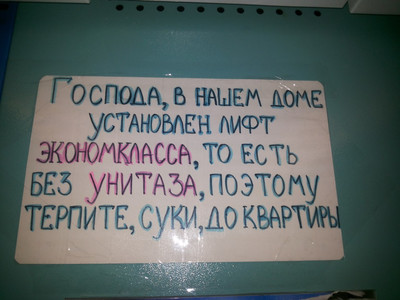 Господа, в нашем доме
установлен лифт
экономкласса, то есть
без унитаза, поэтому
терпите, суки, до квартиры